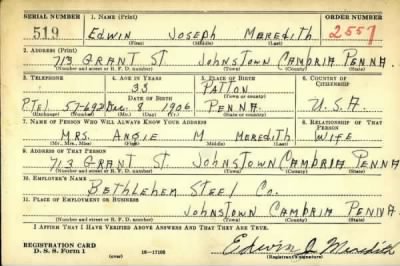 SERIAL NUMBER 1. NAME (Print) ORDER NUMBER
519 EDWIN JOSEPH MEREDITH 2557
(First) (Middle) (Last)
2. ADDRESS (Print)
713 GRANT ST JOHNSTOWN CAMBRIA PENNA.
(Number and street or R. F. D. number) (Town) (County) (State)
3. TELEPHONE 4. AGE IN YEARS 5. PLACE OF BIRTH 6. COUNTRY OF CITIZENSHIP
33 PATTON
DATE OF BIRTH (Town or county)
57-692 Dec. 8 1906 PENNA. U.S.A.
(Exchange) (Number) (Mo.) (Day) (Yr.) (State or country)
7. NAME OF PERSON WHO WILL ALWAYS KNOW YOUR ADDRESS 8. RELATIONSHIP OF THAT PERSON
MRS. ANGIE M MEREDITH WIFE
(Mr., Mrs., Miss) (First) (Middle) (Last)
9. ADDRESS OF THAT PERSON
713 GRANT ST JOHNSTOWN CAMBRIA PENNA
(Number and street or R. F. D. number) (Town) (County) (State)
10. EMPLOYER'S NAME
BETHLEHEM STEEL CO.
11. PLACE OF EMPLOYMENT OR BUSINESS
JOHNSTOWN CAMBRIA PENNA.
(Number and street or R. F. D. number) (Town) (County) (State)
I AFFIRM THAT I HAVE VERIFIED ABOVE ANSWERS AND THAT THEY ARE TRUE.
REGISTRATION CARD
D. S. S. Form 1 (over) 16—17105 Edwin J. Meredith
(Registrant's signature)